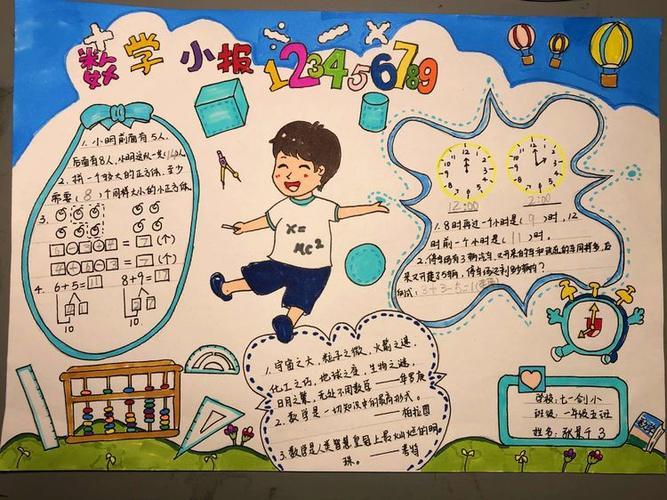 数学小报
123456789
1. 小明前面有5人,
后面有8人,小明这队一共(14)人
2. 拼一个较大的正方体,至少
需要(8)个同样大小的小正方体.
3.
=7(个)
=7(个)
4. 6+5=11 8+9=17
10 10
X=
MC2
12:00 2:00
1. 8时再过一个小时是(9)时, 12
时前一个小时是(11)时.
2. 停车场有3辆汽车,
列式: 3+3-5=1
1. 宇宙之大,粒子之微,火箭之速,
化工之巧,地球之变,生物之谜,
日月之繁,无处不用数学——华罗庚
2. 数学是一切知识中的最高形式.
——柏拉图
3. 数学是人类智慧皇冠上最灿烂的明
珠. ——考特
学校: 七一创小
班级: 一年级五班
姓名: